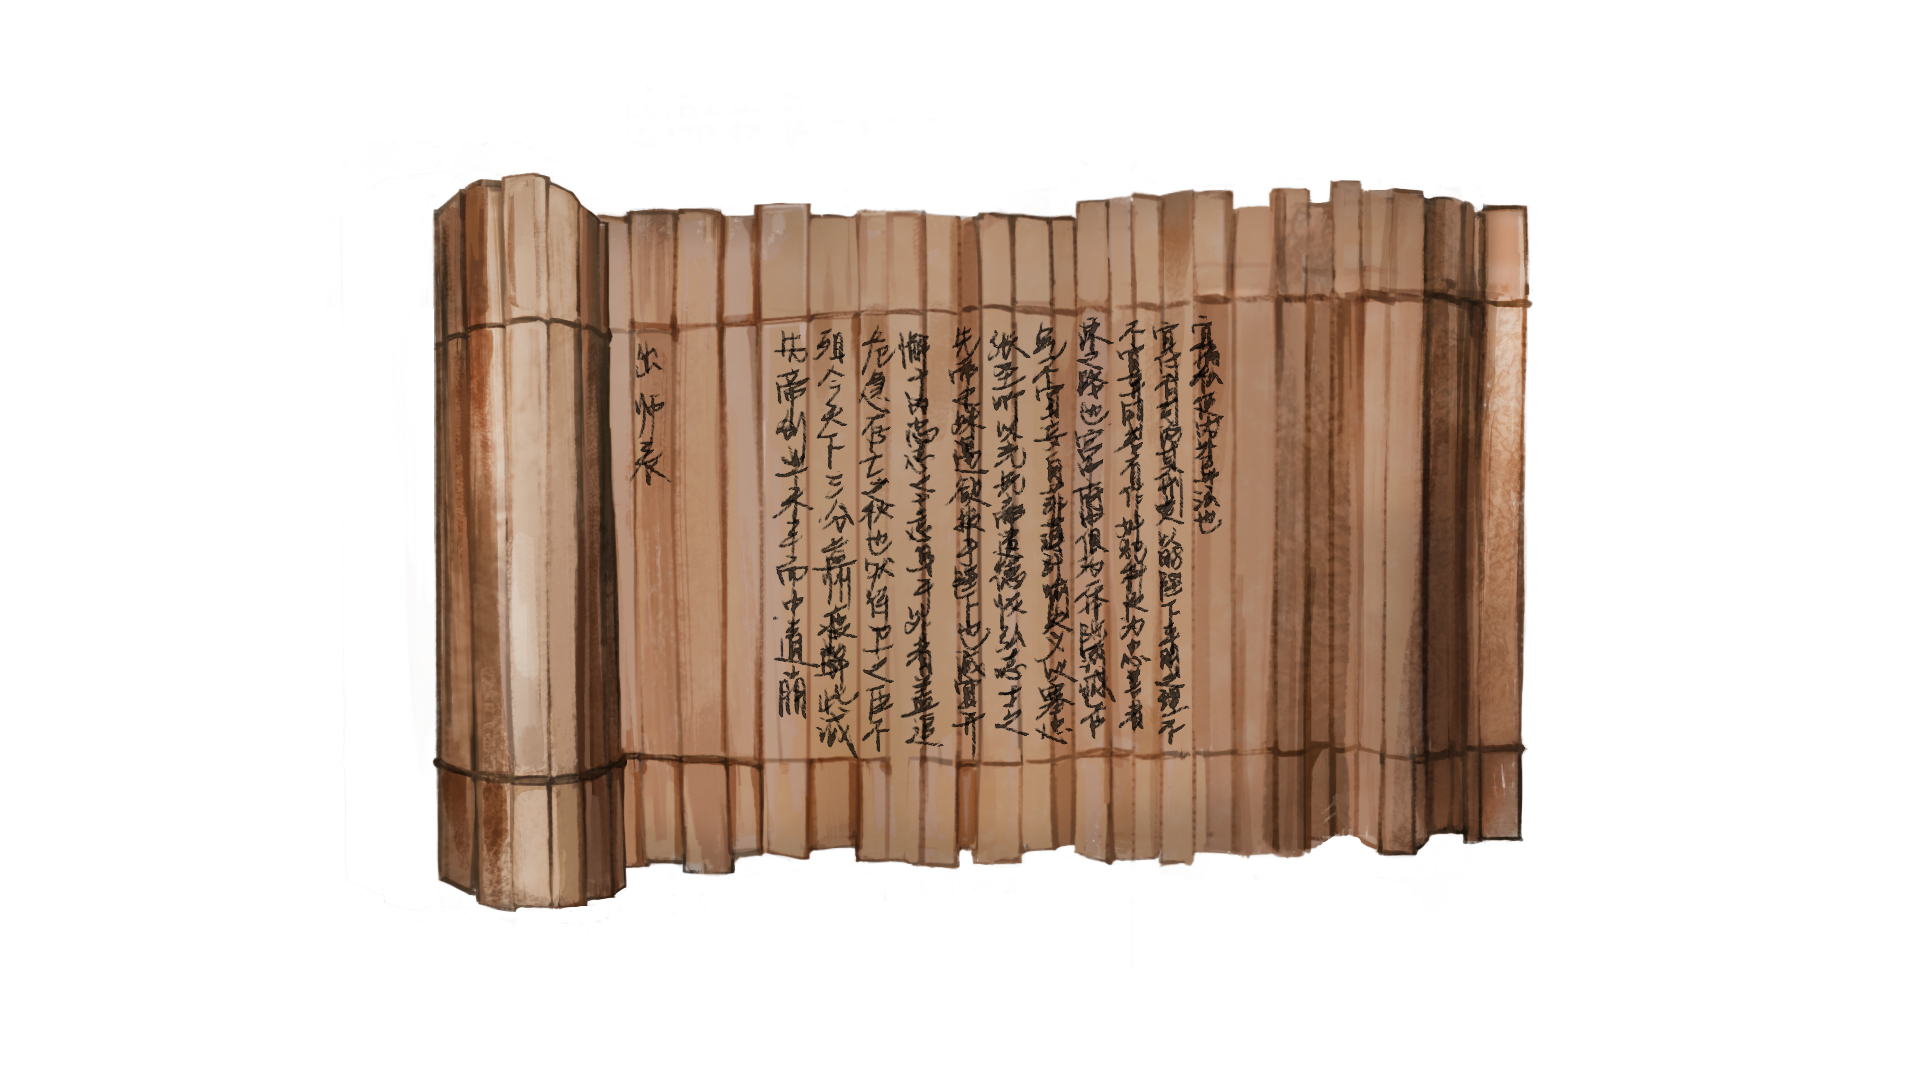 出师表
先帝创业未半而中道崩
殂今天下三分益州疲弊此诚
危急存亡之秋也然侍卫之臣不
懈于内忠志之士忘身于外者盖追
先帝之殊遇欲报于陛下也诚宜开
张圣听以光先帝遗德恢弘志士之
气不宜妄自菲薄引喻失义以塞忠
谏之路也宫中府中俱为一体陟罚臧否
不宜异同若有作奸犯科及为忠善者
宜付有司论其刑赏以昭陛下平明之理不
宜偏私使内外异法也